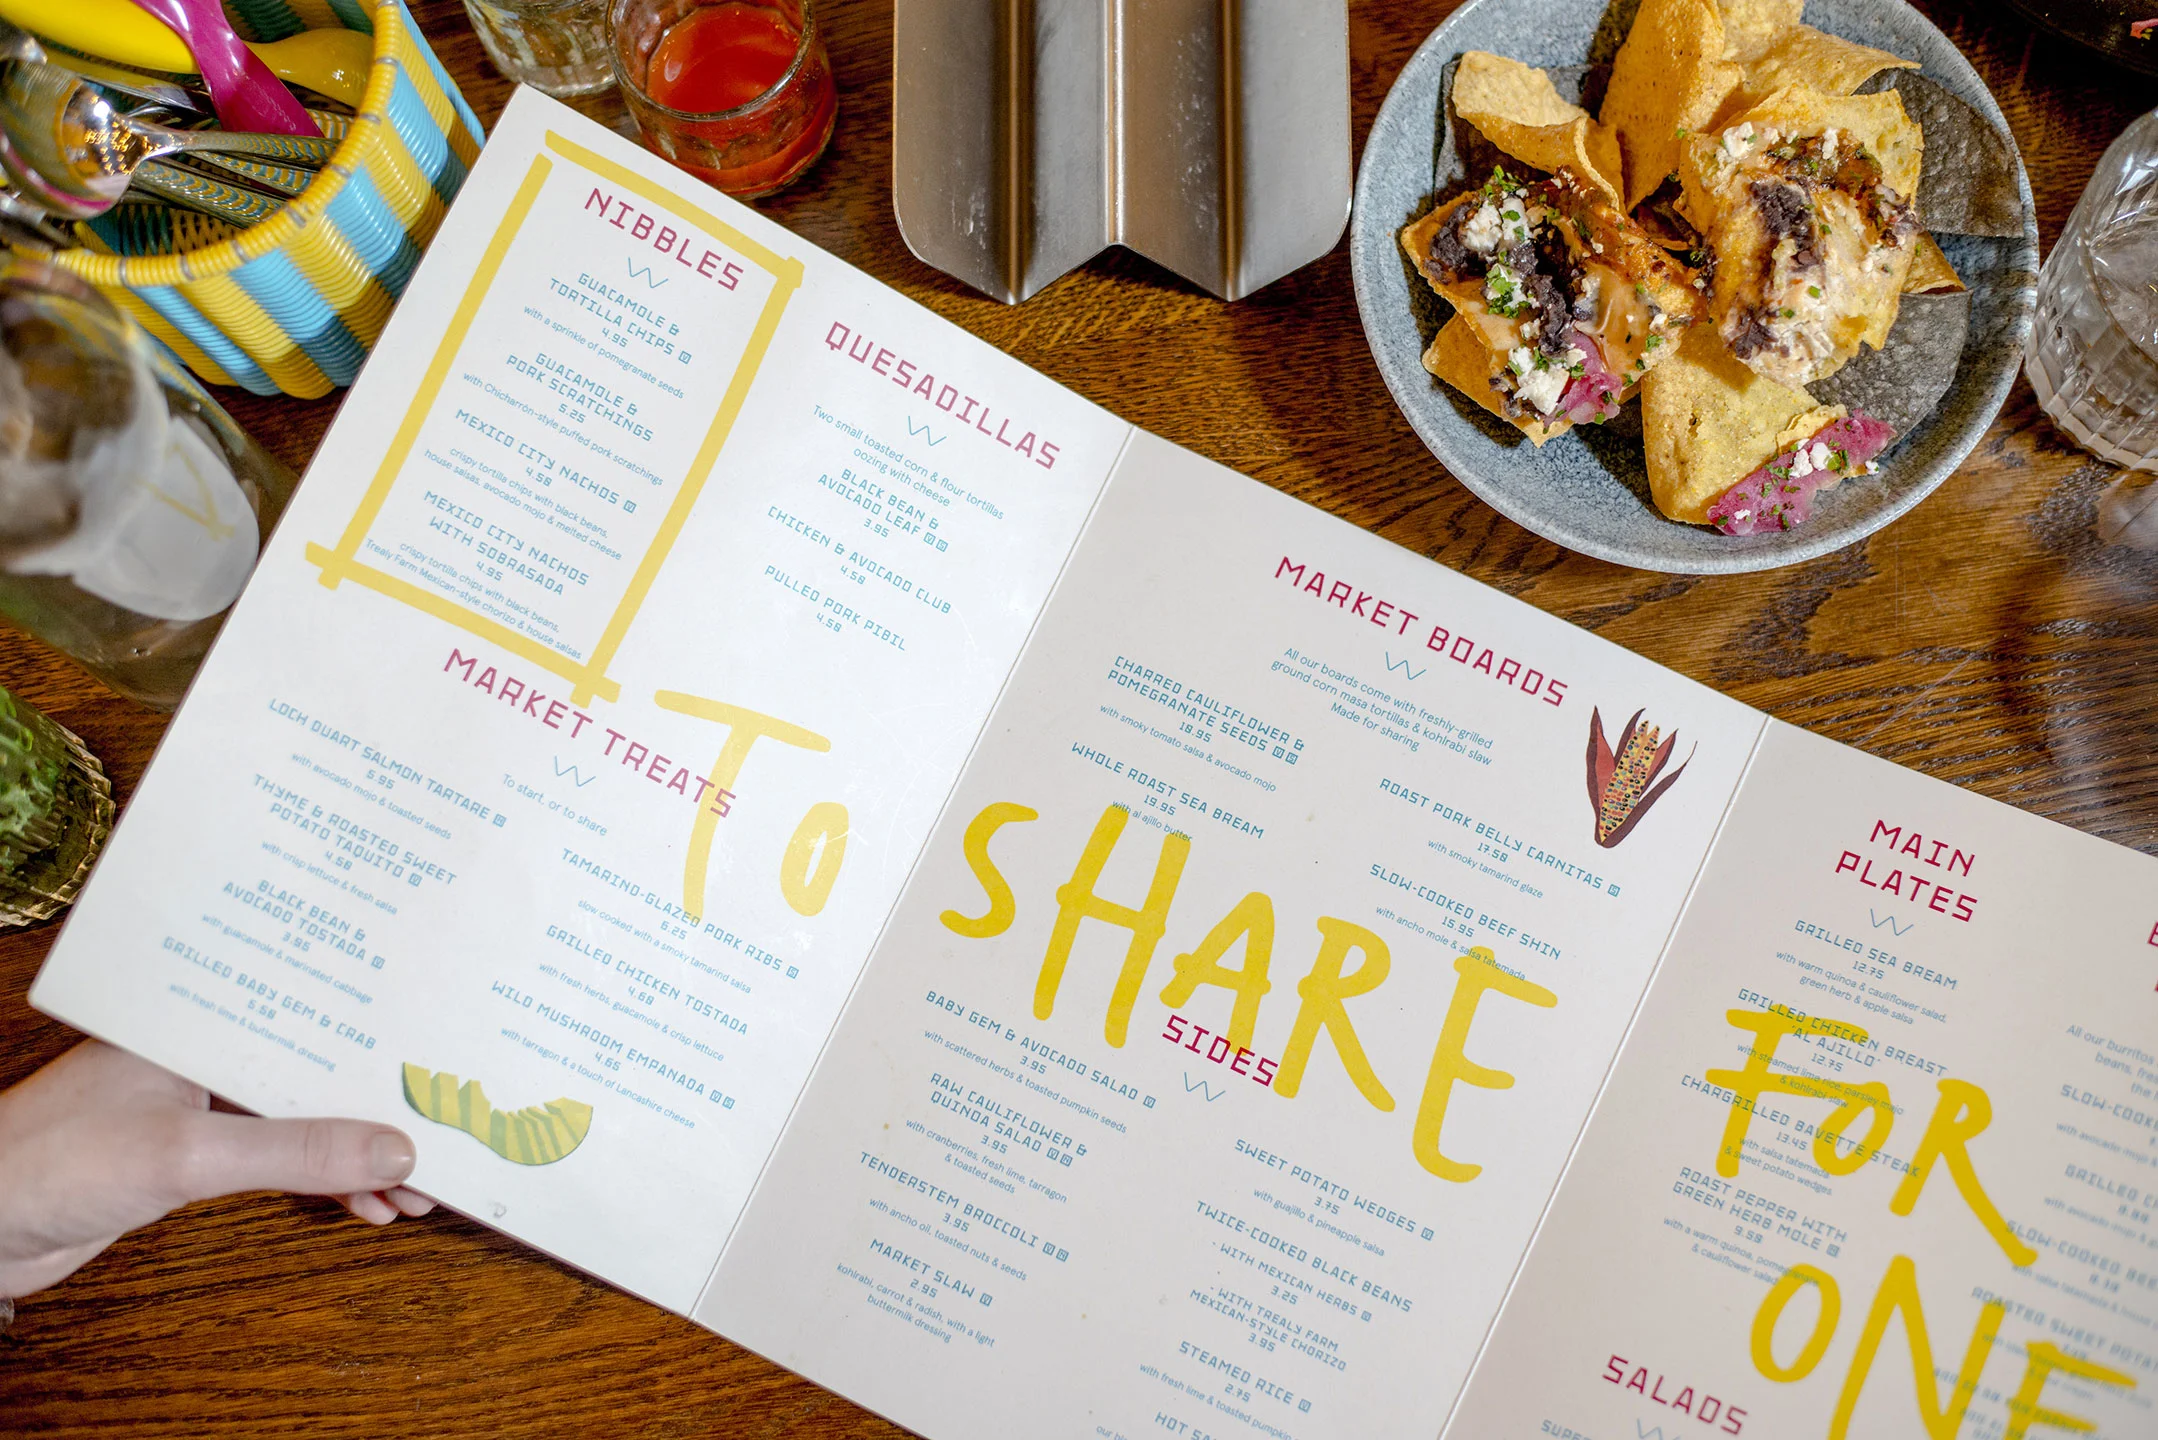 NIBBLES
GUACAMOLE &
TORTILLA CHIPS V
4.95
with a sprinkle of pomegranate seeds
GUACAMOLE &
PORK SCRATCHINGS
5.25
with Chicharrón-style puffed pork scratchings
MEXICO CITY NACHOS V
4.50
crispy tortilla chips with black beans,
house salsas, avocado mojo & melted cheese
MEXICO CITY NACHOS
WITH SOBRASADA
4.95
crispy tortilla chips with black beans,
Trealy Farm Mexican-style chorizo & house salsas
QUESADILLAS
Two small toasted corn & flour tortillas
oozing with cheese
BLACK BEAN &
AVOCADO LEAF
3.95
CHICKEN & AVOCADO CLUB
4.50
PULLED PORK PIBIL
4.50
MARKET TREATS
To start, or to share
LOCH DUART SALMON TARTARE
5.95
with avocado mojo & toasted seeds
THYME & ROASTED SWEET
POTATO TAQUITO
4.50
with crisp lettuce & fresh salsa
BLACK BEAN &
AVOCADO TOSTADA
3.95
with guacamole & marinated cabbage
GRILLED BABY GEM & CRAB
5.50
with fresh lime & buttermilk dressing
TAMARIND-GLAZED PORK RIBS
6.25
slow cooked with a smoky tamarind salsa
GRILLED CHICKEN TOSTADA
4.60
with fresh herbs, guacamole & crisp lettuce
WILD MUSHROOM EMPANADA
4.65
with tarragon & a touch of Lancashire cheese
TO
SHARE
MARKET BOARDS
All our boards come with freshly-grilled
ground corn masa tortillas & kohlrabi slaw
Made for sharing
CHARRED CAULIFLOWER &
POMEGRANATE SEEDS
10.95
with smoky tomato salsa & avocado mojo
WHOLE ROAST SEA BREAM
19.95
with al ajillo butter
ROAST PORK BELLY CARNITAS
17.50
with smoky tamarind glaze
SLOW-COOKED BEEF SHIN
15.95
with ancho mole & salsa tatemada
SIDES
BABY GEM & AVOCADO SALAD V
3.95
with scattered herbs & toasted pumpkin seeds
RAW CAULIFLOWER &
QUINOA SALAD
3.95
with cranberries, fresh lime, tarragon
& toasted seeds
TENDERSTEM BROCCOLI
3.95
with ancho oil, toasted nuts & seeds
MARKET SLAW V
2.95
kohlrabi, carrot & radish, with a light
buttermilk dressing
SWEET POTATO WEDGES V
3.75
with guajillo & pineapple salsa
TWICE-COOKED BLACK BEANS
- WITH MEXICAN HERBS V
3.25
- WITH TREALY FARM
MEXICAN-STYLE CHORIZO
3.95
STEAMED RICE V
2.75
with fresh lime & toasted pumpkin
HOT SA
our
FOR
ONE
MAIN
PLATES
GRILLED SEA BREAM
12.75
with warm quinoa & cauliflower salad,
green herb & apple salsa
GRILLED CHICKEN BREAST
'AL AJILLO'
12.75
with steamed lime rice, parsley mojo
& kohlrabi slaw
CHARGRILLED BAVETTE STEAK
13.45
with salsa tatemada
& sweet potato wedges
ROAST PEPPER WITH
GREEN HERB MOLE
9.50
with a warm quinoa, pomegranate
& cauliflower salad
SALADS
SUPE
All our burritos
beans, fres
the
SLOW-COOKE
with avocado mojo &
GRILLED CH
SLOW-COOKED BEE
ROASTED SWEET POTAT